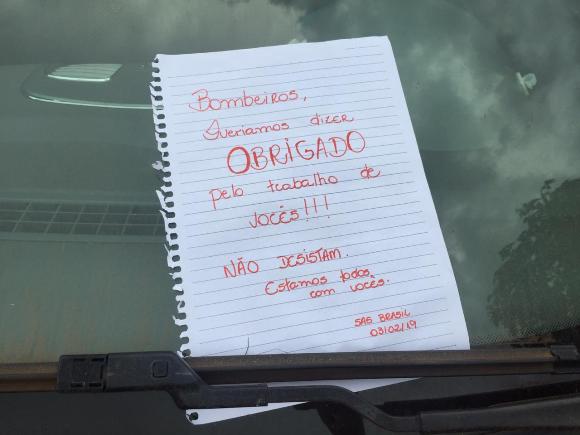 Bombeiros,
Queriamos dizer
OBRIGADO
pelo trabalho de
vocês!!!
NÃO DESISTAM.
Estamos todos
com vocês.
SAS BRASIL
03/02/19